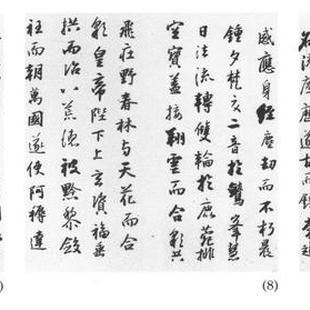 感應身經塵劫而不朽晨
鍾夕梵交二音於鷲峯慧
日法流轉雙輪於鹿菀排
空寶蓋接翔雲而合彩共
飛莊野春林与天花而合
彩皇帝陛下上玄資福垂
拱而治八荒德被黔黎斂
衽而朝萬國遂使阿耨達
(8)